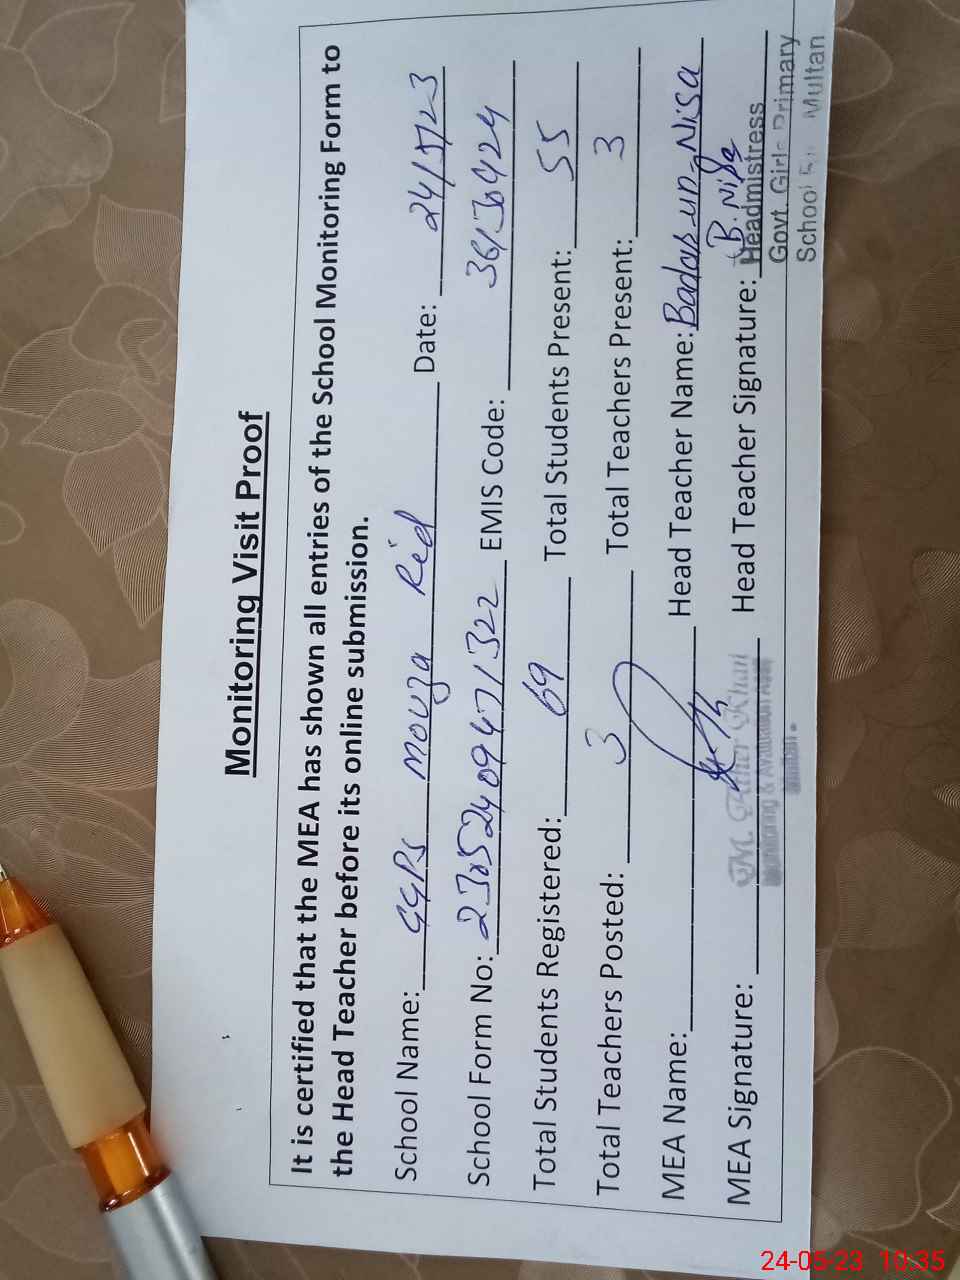 Monitoring Visit Proof
It is certified that the MEA has shown all entries of the School Monitoring Form to
the Head Teacher before its online submission.
School Name: GGPS mouza Rid Date: 24/5/23
School Form No: 23052409471322 EMIS Code: 36130424
Total Students Registered: 69 Total Students Present: 55
Total Teachers Posted: 3 Total Teachers Present: 3
MEA Name: Head Teacher Name: Badar-un-Nisa
MEA Signature: Head Teacher Signature: B. Nisa
M. Khan
Monitoring & Evaluation
Multan.
Headmistress
Govt. Girls Primary
School Multan
24-05-23 10:35